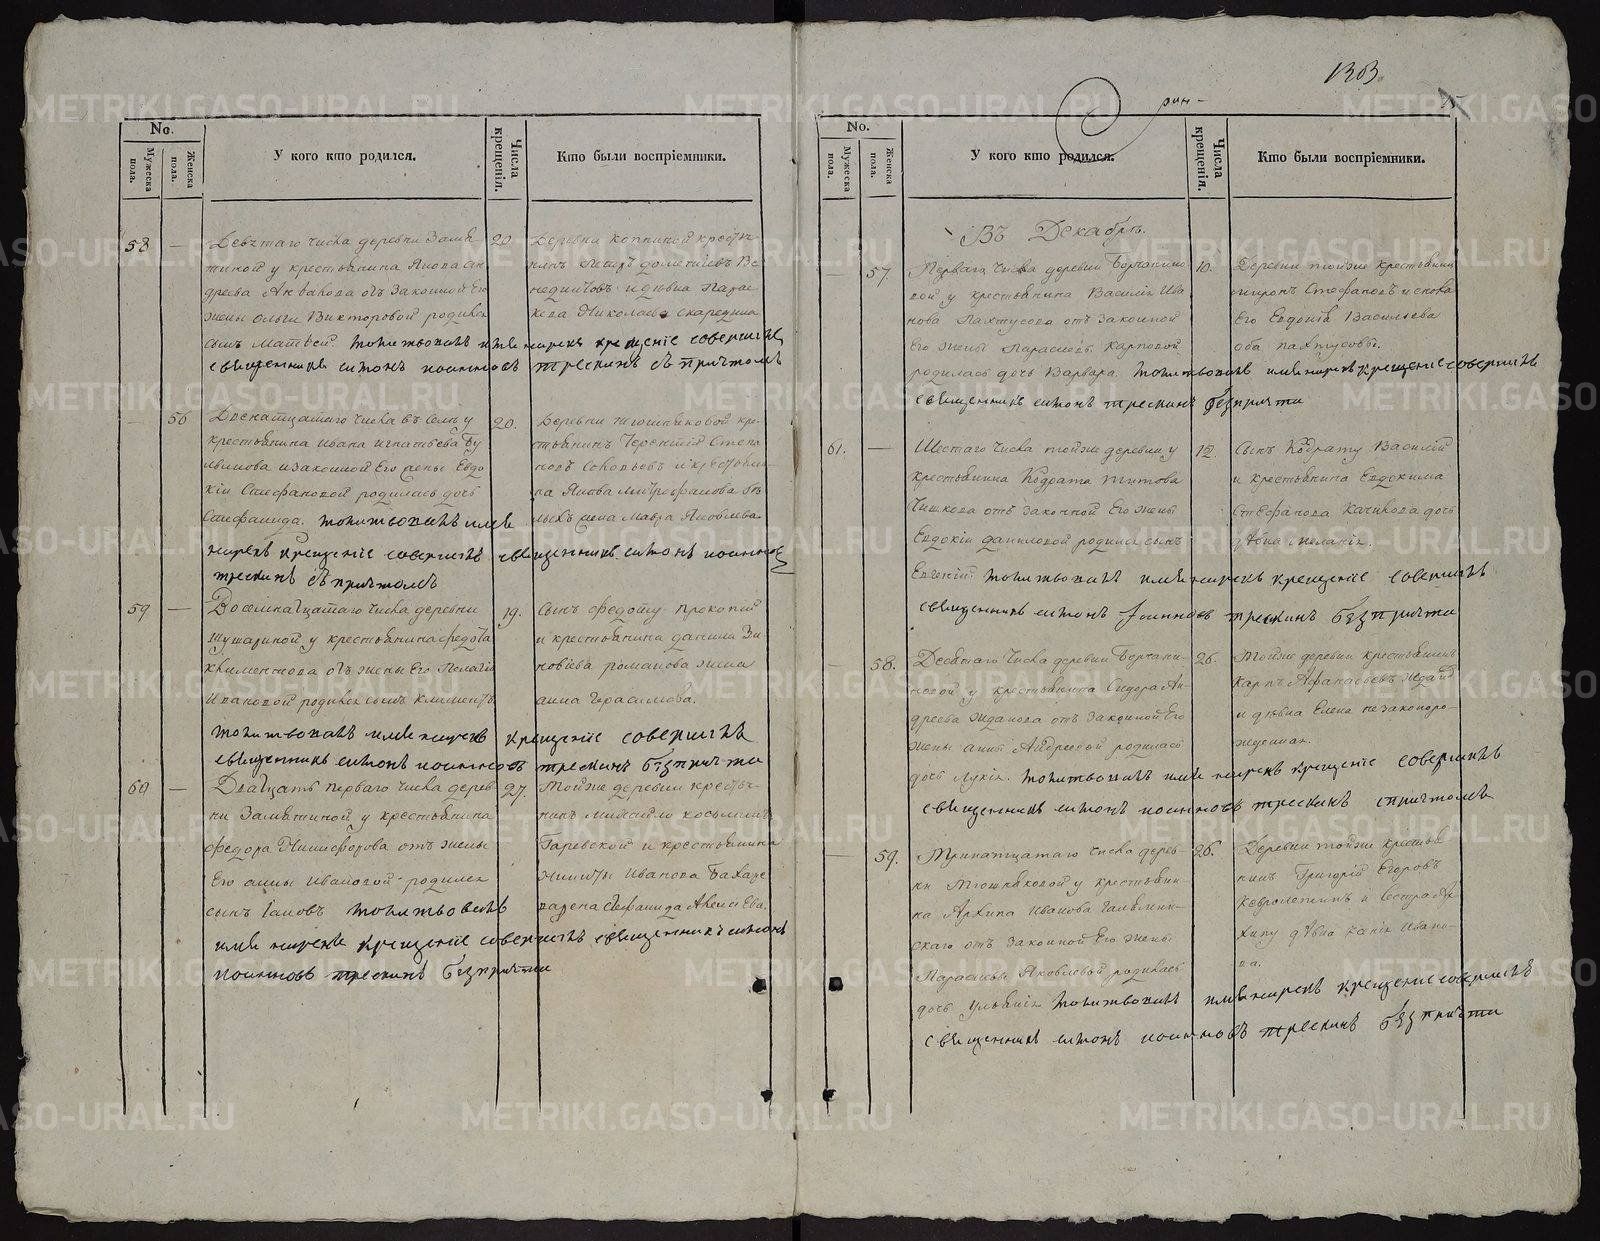 No.
Мужеска пола.
Женска пола.
У кого кто родился.
Числа крещенія.
Кто были воспріемники.
58
—
Девятаго числа деревни Замя-
тиной у крестьянина Якова Ан
дреева отъ законной Его
жены Ольги Викторовой родился
сынъ Матвей. молитвовалъ имя нарекъ крещеніе совершилъ
священникъ Симонъ Іоанновъ Трескинъ съ причтомъ
20
Деревни Коптиной крестья-
нинъ Петръ Дометіевъ Ве
недиктовъ и девка Парас
кева Николаева Скаредина
—
56
числа въ Селе у
крестьянина Ивана Игнатьева Бу
и законной Его жены Евдо
кіи Стефановой родилась дочь
Стефанида. молитвовалъ имя
нарекъ крещеніе совершилъ священникъ Симонъ Іоанновъ
Трескинъ съ причтомъ
20.
Деревни кре-
стьянинъ Терентій Степа
новъ Соковьевъ и крестьяни-
на Якова Митрофанова
жена Мавра Яковлева
59
—
Восемнадцатаго числа деревни
Шушариной у крестьянина Федота
Климентова отъ жены Его Пелагіи
Ивановой родился сынъ Климентъ.
молитвовалъ имя нарекъ крещеніе совершилъ
священникъ Симонъ Іоанновъ Трескинъ безъ причта
19.
Сынъ Федоту Прокопій
и крестьянина Данила Зи
новіева Романова жена
Анна Герасимова.
60
—
Двадцать перваго числа дерев
ни Замятиной у крестьянина
Федора Никифорова отъ жены
Его Анны Ивановой родился
сынъ Іаковъ молитвовалъ
имя нарекъ крещеніе совершилъ священникъ Симонъ
Іоанновъ Трескинъ безъ причта
27.
Тойже деревни крестья-
нинъ Михайло Косьминъ
Гаревской и крестьянина
Никиты Иванова
Стефанида Алексеева.
рин-
No.
Мужеска пола.
Женска пола.
У кого кто родился.
Числа крещенія.
Кто были воспріемники.
Въ Декабрѣ.
—
57.
Перваго числа деревни
вой у крестьянина Василія Ива
нова Пахтусова отъ законной
Его жены Парасковьи Карповой
родилась дочь Варвара. молитвовалъ имя нарекъ крещеніе совершилъ
священникъ Симонъ Трескинъ безъ причта
10.
Деревни тойже крестьянинъ
Миронъ Стефановъ и сноха
Его Евдокія Васильева
оба Пахтусовы.
61.
—
Шестаго числа тойже деревни у
крестьянина Кодрата Титова
Чижкова отъ законной Его жены
Евдокіи Даниловой родился сынъ
Евгеній. молитвовалъ имя нарекъ крещеніе совершилъ
священникъ Симонъ Іоанновъ Трескинъ безъ причта
12.
Сынъ Кодрату Василій
и крестьянина Евдокима
Стефанова Качикова дочь
девка Меланія.
—
58.
Десятаго числа деревни
новой у крестьянина Сидора Ан-
дреева Жданова отъ законной Его
жены Анны Андреевой родилась
дочь Лукія. молитвовалъ имя нарекъ крещеніе совершилъ
священникъ Симонъ Іоанновъ Трескинъ с причтомъ
26.
Тойже деревни крестьянинъ
Карпъ Афанасьевъ
и девка Елена незаконоро-
жденная.
—
59.
Тринатцатаго числа дерев-
ни Тюшняковой у крестьяни-
на Архипа Иванова
скаго отъ законной Его жены
Парасковьи Яковлевой родилась
дочь Ульянія молитвовалъ имя нарекъ крещеніе совершилъ
священникъ Симонъ Іоанновъ Трескинъ безъ причта
26.
Деревни тойже крестья
нинъ Григорій Егоровъ
и сестра Ар
хипу девка Ивано-
ва.
METRIKI.GASO-URAL.RU